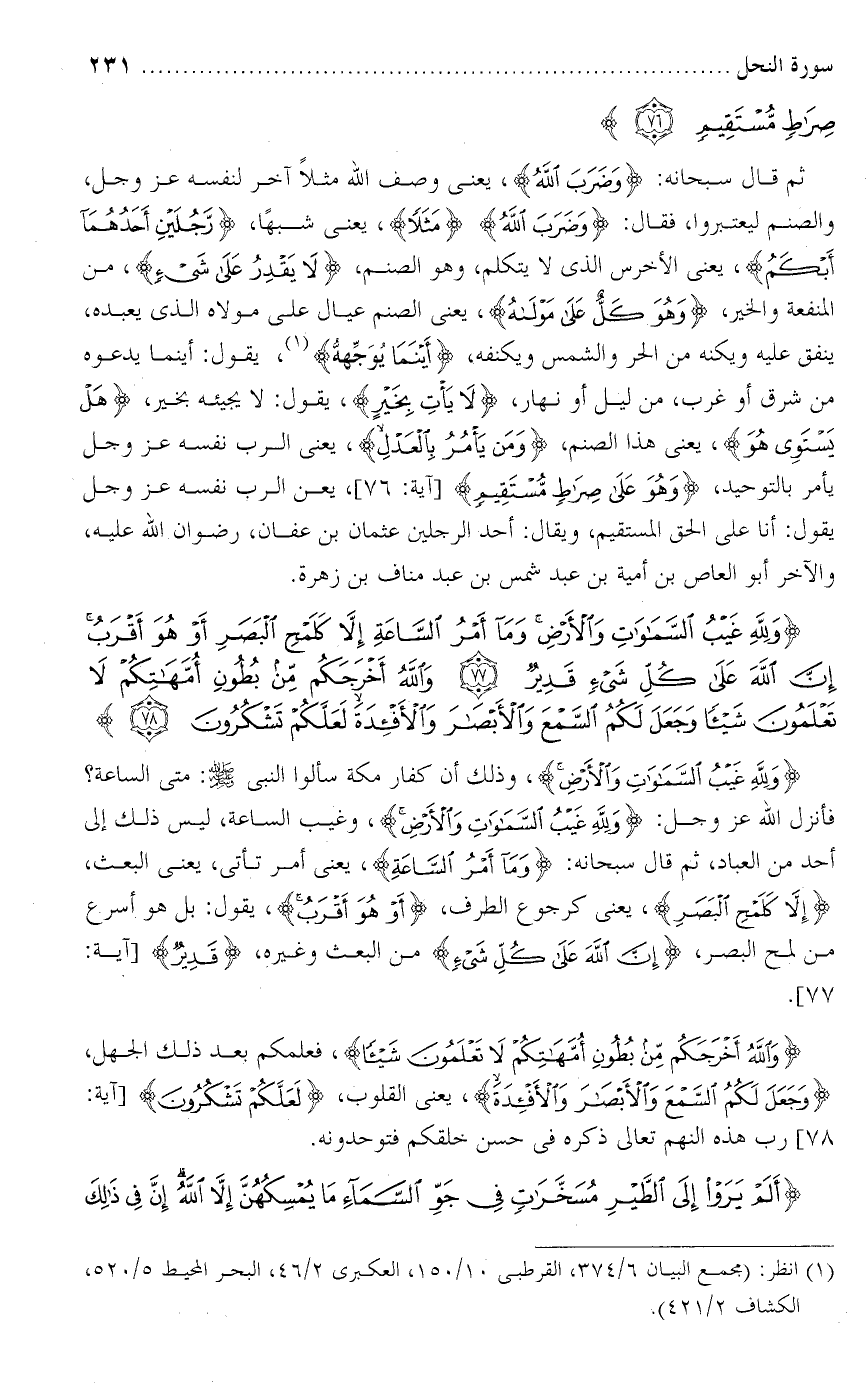 سورة النحل ........................................................................ ٢٣١
صِرَٰطٍ مُّسْتَقِيمٍ ﴿٧٦﴾ ﴾
ثم قال سبحانه: ﴿وَضَرَبَ ٱللَّهُ﴾، يعنى وصف الله مثلاً آخر لنفسه عز وجل،
والصنم ليعتبروا، فقال: ﴿وَضَرَبَ ٱللَّهُ﴾ ﴿مَثَلًا﴾، يعنى شبهًا، ﴿رَّجُلَيْنِ أَحَدُهُمَآ
أَبْكَمُ﴾، يعنى الأخرس الذى لا يتكلم، وهو الصنم، ﴿لَا يَقْدِرُ عَلَىٰ شَىْءٍ﴾، من
المنفعة والخير، ﴿وَهُوَ كَلٌّ عَلَىٰ مَوْلَىٰهُ﴾، يعنى الصنم عيال على مولاه الذى يعبده،
ينفق عليه ويكنه من الحر والشمس ويكنفه، ﴿أَيْنَمَا يُوَجِّههُّ﴾(١)، يقول: أينما يدعوه
من شرق أو غرب، من ليل أو نهار، ﴿لَا يَأْتِ بِخَيْرٍ﴾، يقول: لا يجيئه بخير، ﴿هَلْ
يَسْتَوِى هُوَ﴾، يعنى هذا الصنم، ﴿وَمَن يَأْمُرُ بِٱلْعَدْلِ﴾، يعنى الرب نفسه عز وجل
يأمر بالتوحيد، ﴿وَهُوَ عَلَىٰ صِرَٰطٍ مُّسْتَقِيمٍ﴾ [آية: ٧٦]، يعن الرب نفسه عز وجل
يقول: أنا على الحق المستقيم، ويقال: أحد الرجلين عثمان بن عفان، رضوان الله عليه،
والآخر أبو العاص بن أمية بن عبد شمس بن عبد مناف بن زهرة.
﴿وَلِلَّهِ غَيْبُ ٱلسَّمَٰوَٰتِ وَٱلْأَرْضِ ۚ وَمَآ أَمْرُ ٱلسَّاعَةِ إِلَّا كَلَمْحِ ٱلْبَصَرِ أَوْ هُوَ أَقْرَبُ ۚ
إِنَّ ٱللَّهَ عَلَىٰ كُلِّ شَىْءٍ قَدِيرٌ ﴿٧٧﴾ وَٱللَّهُ أَخْرَجَكُم مِّنۢ بُطُونِ أُمَّهَٰتِكُمْ لَا
تَعْلَمُونَ شَيْـًٔا وَجَعَلَ لَكُمُ ٱلسَّمْعَ وَٱلْأَبْصَٰرَ وَٱلْأَفْـِٔدَةَ ۙ لَعَلَّكُمْ تَشْكُرُونَ ﴿٧٨﴾ ﴾
﴿وَلِلَّهِ غَيْبُ ٱلسَّمَٰوَٰتِ وَٱلْأَرْضِ ۚ﴾، وذلك أن كفار مكة سألوا النبى ﷺ: متى الساعة؟
فأنزل الله عز وجل: ﴿وَلِلَّهِ غَيْبُ ٱلسَّمَٰوَٰتِ وَٱلْأَرْضِ ۚ﴾، وغيب الساعة، ليس ذلك إلى
أحد من العباد، ثم قال سبحانه: ﴿وَمَآ أَمْرُ ٱلسَّاعَةِ﴾، يعنى أمر تأتى، يعنى البعث،
﴿إِلَّا كَلَمْحِ ٱلْبَصَرِ﴾، يعنى كرجوع الطرف، ﴿أَوْ هُوَ أَقْرَبُ ۚ﴾، يقول: بل هو أسرع
من لمح البصر، ﴿إِنَّ ٱللَّهَ عَلَىٰ كُلِّ شَىْءٍ﴾ من البعث وغيره، ﴿قَدِيرٌ﴾ [آية:
٧٧].
﴿وَٱللَّهُ أَخْرَجَكُم مِّنۢ بُطُونِ أُمَّهَٰتِكُمْ لَا تَعْلَمُونَ شَيْـًٔا﴾، فعلمكم بعد ذلك الجهل،
﴿وَجَعَلَ لَكُمُ ٱلسَّمْعَ وَٱلْأَبْصَٰرَ وَٱلْأَفْـِٔدَةَ ۙ﴾، يعنى القلوب، ﴿لَعَلَّكُمْ تَشْكُرُونَ﴾ [آية:
٧٨] رب هذه النهم تعالى ذكره فى حسن خلقكم فتوحدونه.
﴿أَلَمْ يَرَوْا۟ إِلَى ٱلطَّيْرِ مُسَخَّرَٰتٍ فِى جَوِّ ٱلسَّمَآءِ مَا يُمْسِكُهُنَّ إِلَّا ٱللَّهُ ۗ إِنَّ فِى ذَٰلِكَ
(١) انظر: (مجمع البيان ٣٧٤/٦، القرطبى ١٥٠/١٠، العكبرى ٤٦/٢، البحر المحيط ٥٢٠/٥،
الكشاف ٤٢١/٢).